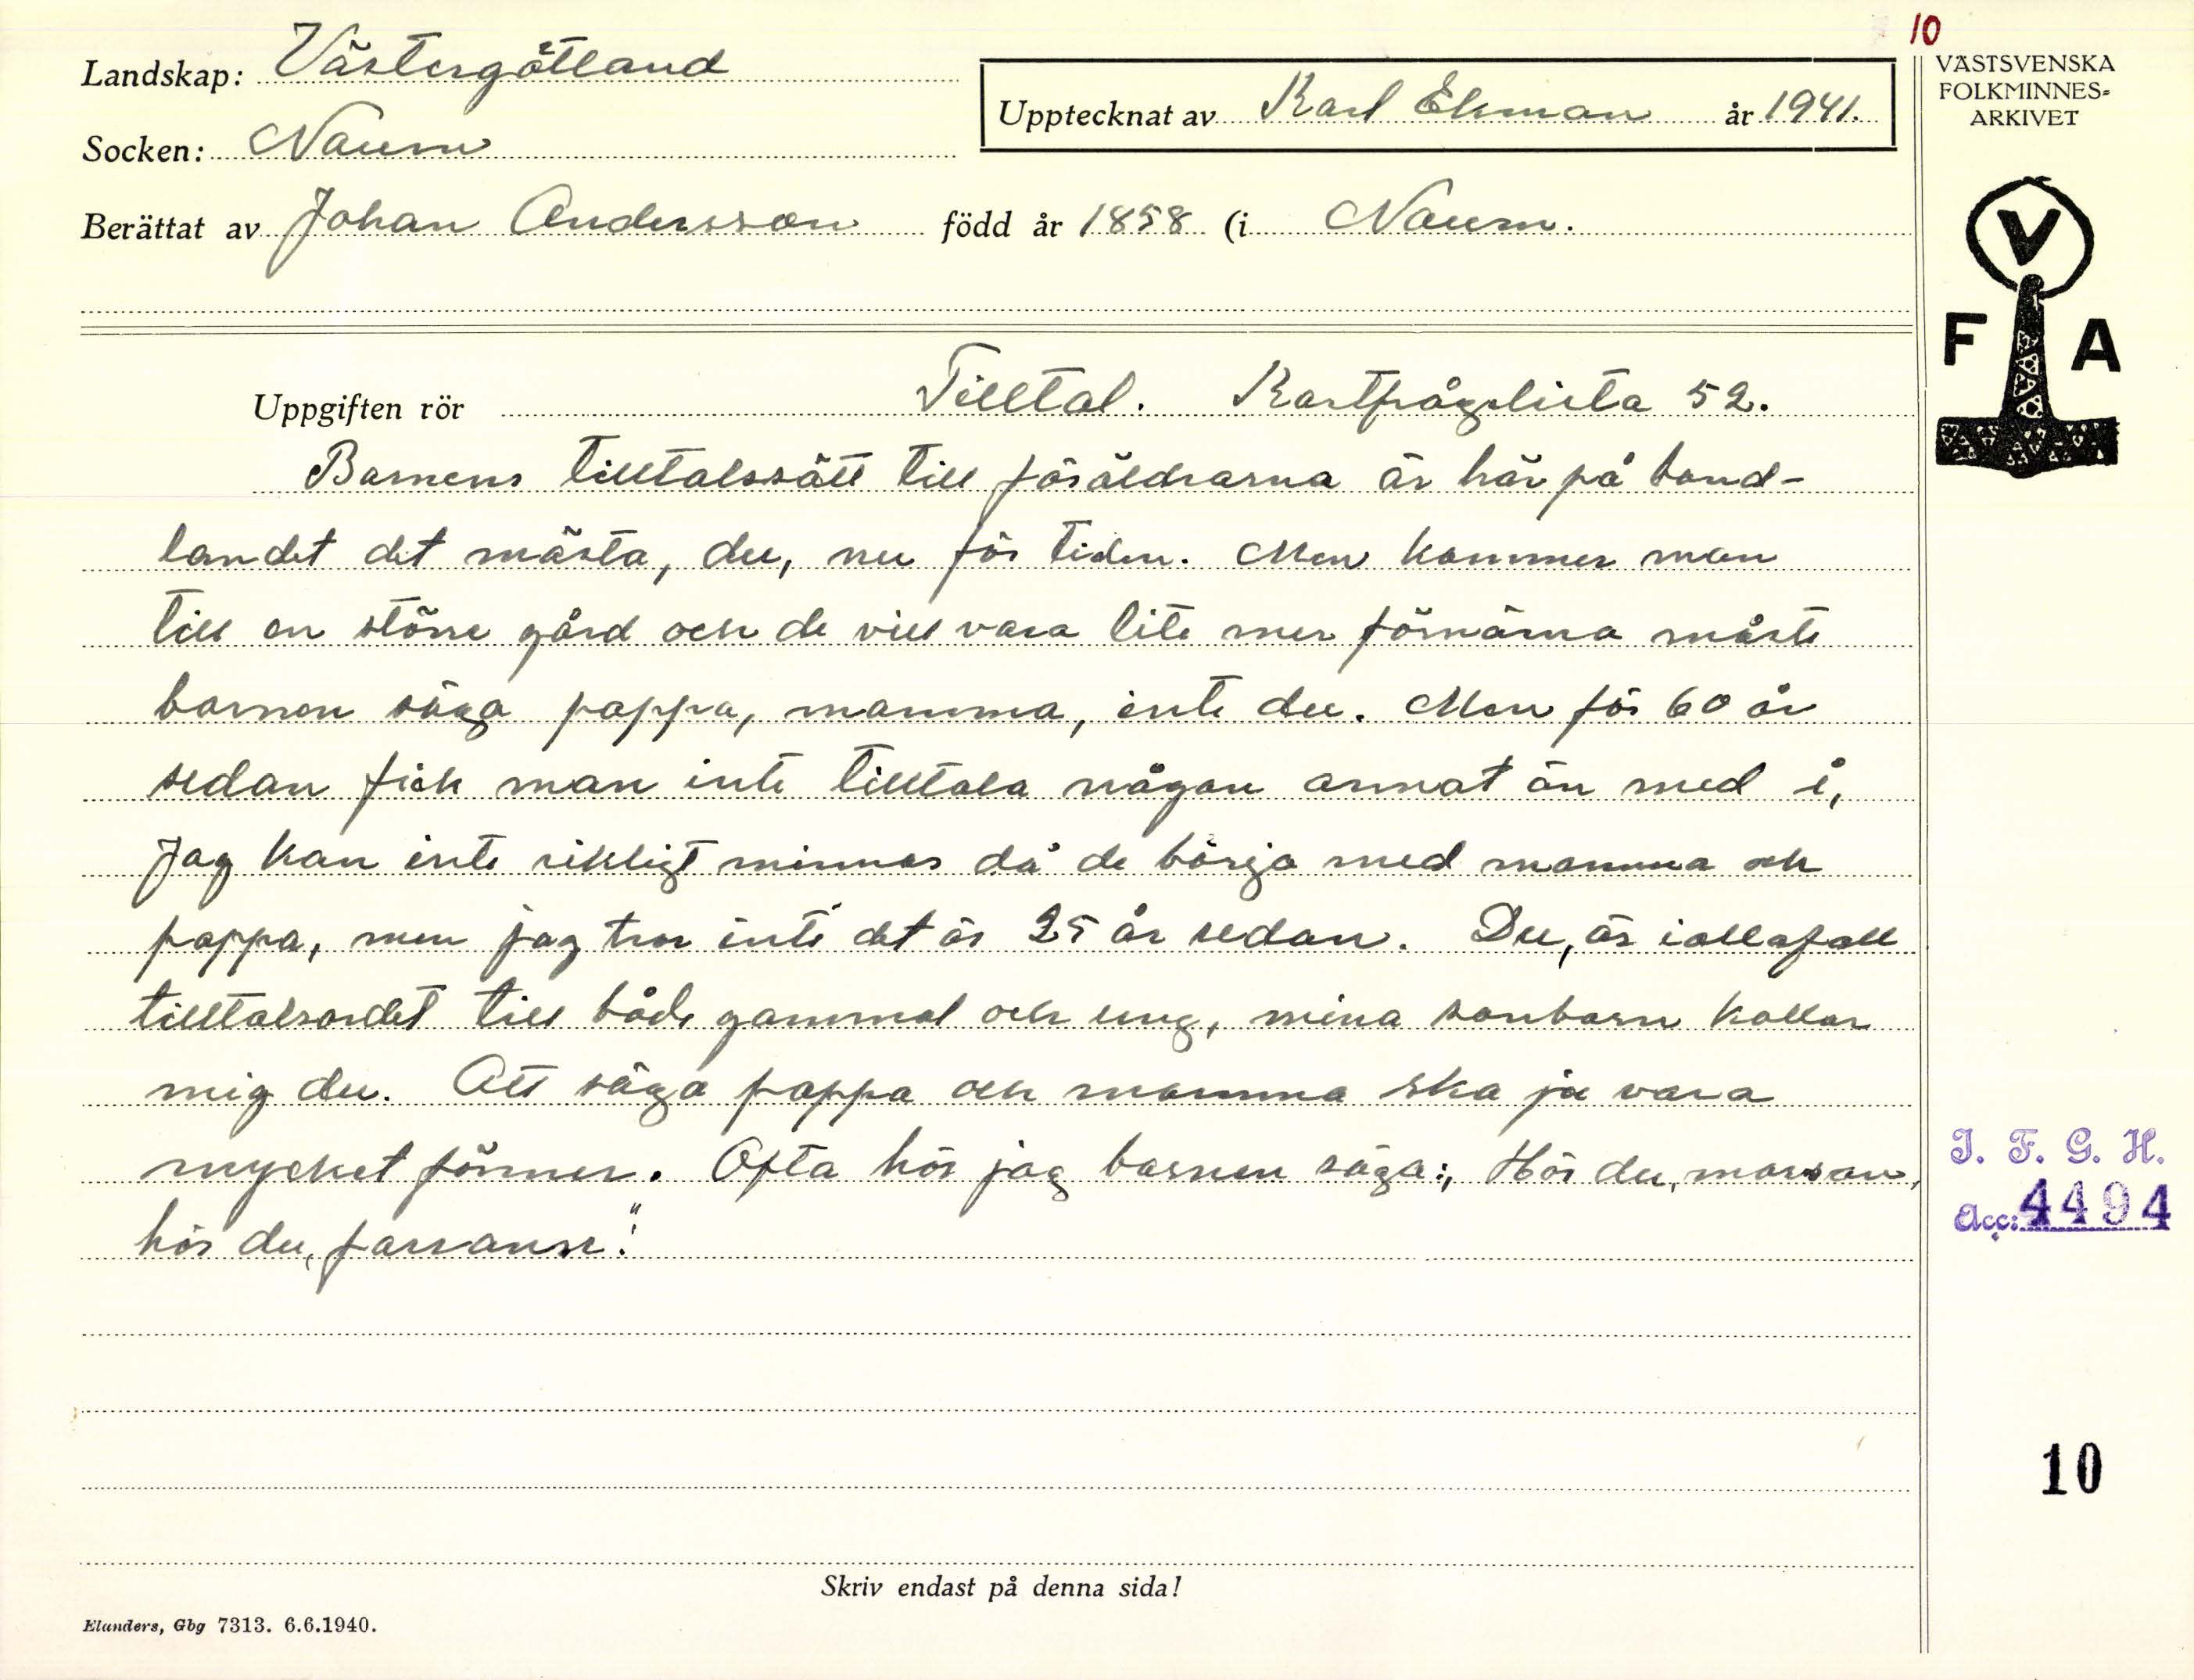 10
Landskap: Västergötland
Upptecknat av Karl Ekman år 1941.
VÄSTSVENSKA
FOLKMINNES=
ARKIVET
Socken: Naum
Berättat av Johan Andersson född år 1858 (i Naum.
V
F A
Uppgiften rör Tilltal. Kortfrågelista 52.
Barnens tilltalssätt till föräldrarna är här på bond-
landet det mästa, du, nu för tiden. Men kommer man
till en större gård och de vill vara lite mer förnäma måste
barnen säga pappa, mamma, inte du. Men för 60 år
sedan fick man inte tilltala någon annat än med i,
Jag kan inte riktigt minnas då de börja med mamma och
pappa, men jag tror inte det är 25 år sedan. Du, är iallafall
tilltalsordet till både gammal och ung, mina sonbarn kallar
mig du. Att säga pappa och mamma ska ju vara
mycket finner. Ofta hör jag barnen säga:, Hör du, morsan,
hör du, farsan!"
I. F. G. H.
Acc: 4494
10
Skriv endast på denna sida!
Elanders, Gbg 7313. 6.6.1940.